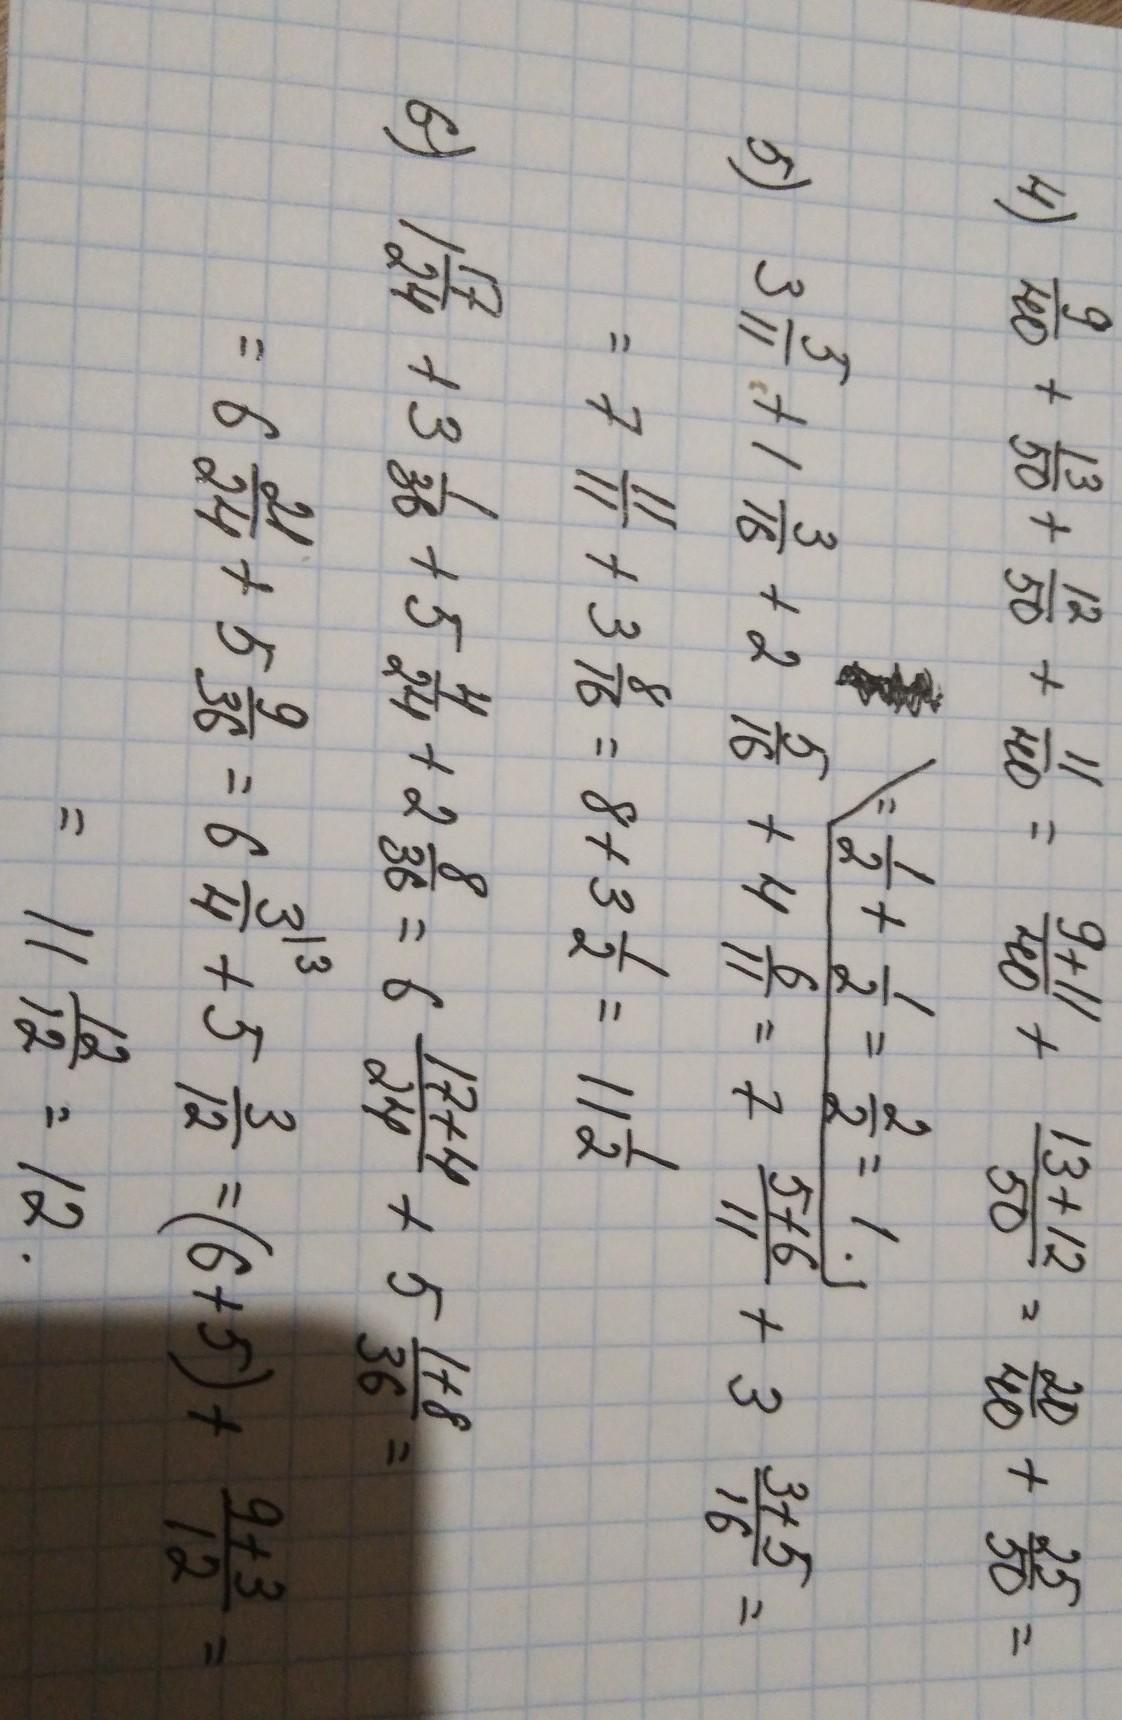 4) 9/40 + 13/50 + 12/50 + 11/40 = (9+11)/40 + (13+12)/50 = 20/40 + 25/50 =
= 1/2 + 1/2 = 2/2 = 1.
5) 3 5/11 + 1 3/16 + 2 5/16 + 4 6/11 = 7 (5+6)/11 + 3 (3+5)/16 =
= 7 11/11 + 3 8/16 = 8 + 3 1/2 = 11 1/2
6) 1 17/24 + 3 1/36 + 5 4/24 + 2 8/36 = 6 (17+4)/24 + 5 (1+8)/36 =
= 6 21/24 + 5 9/36 = 6 3/4 \3 + 5 3/12 = (6+5) + (9+3)/12 =
= 11 12/12 = 12.